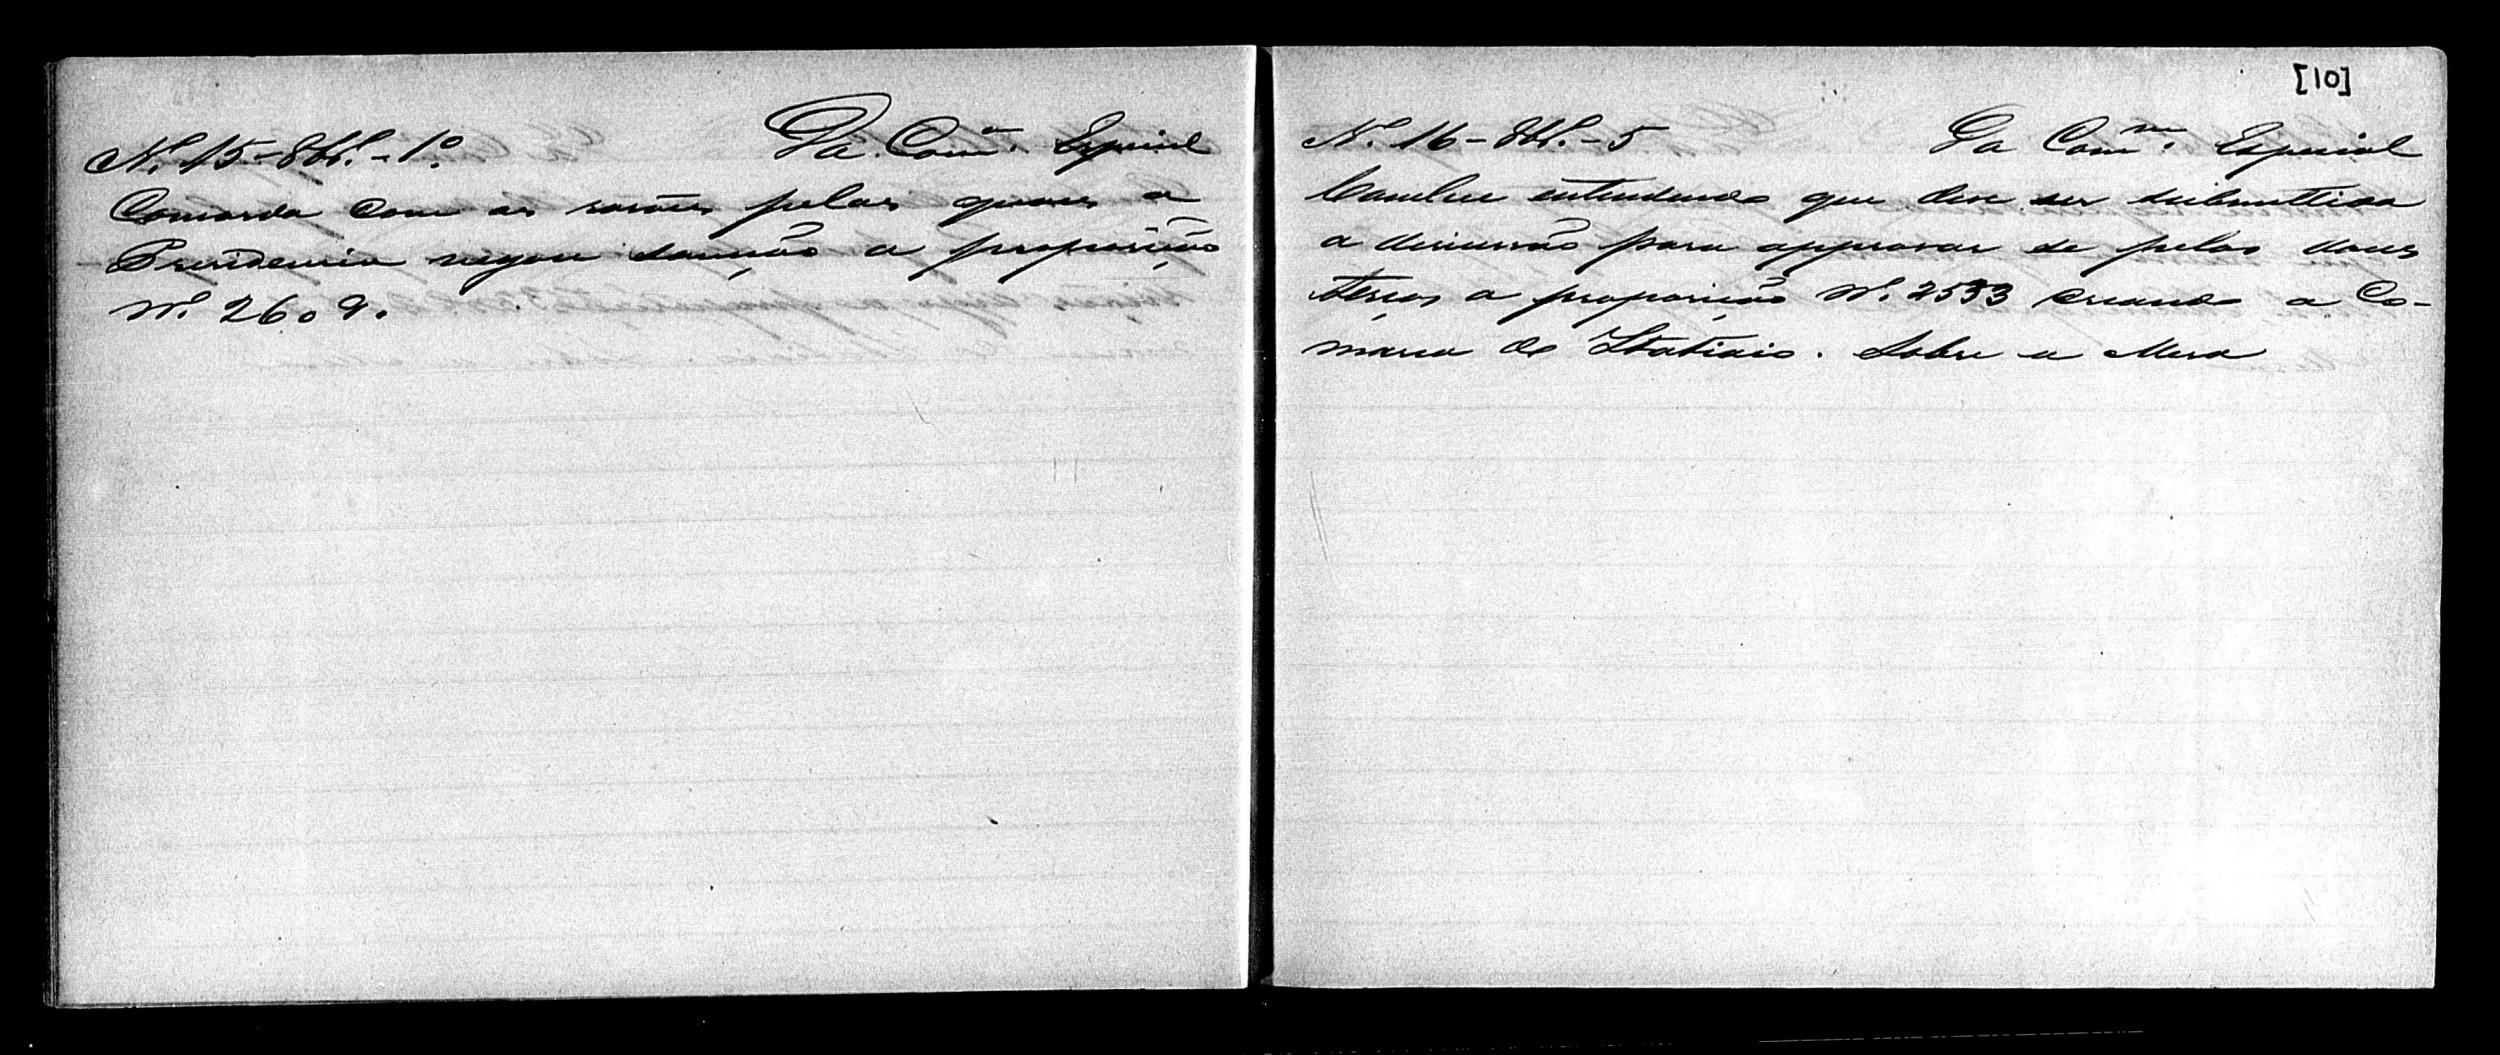 Nº. 15 - 8br. - 1º. Da Comm. Especial
Concorda com as rasões pelas quaes a
Presidencia negou sancção a proposição
Nº. 2609.
[10]
Nº. 16 - 8br. - 5 Da Comm. Especial
Conclue entendendo que deve ser submettida
a discussão para approvar se pelos dous
terços a proposição Nº. 2533 creando a Co-
marca de Itatiaio. Sobre a Mesa